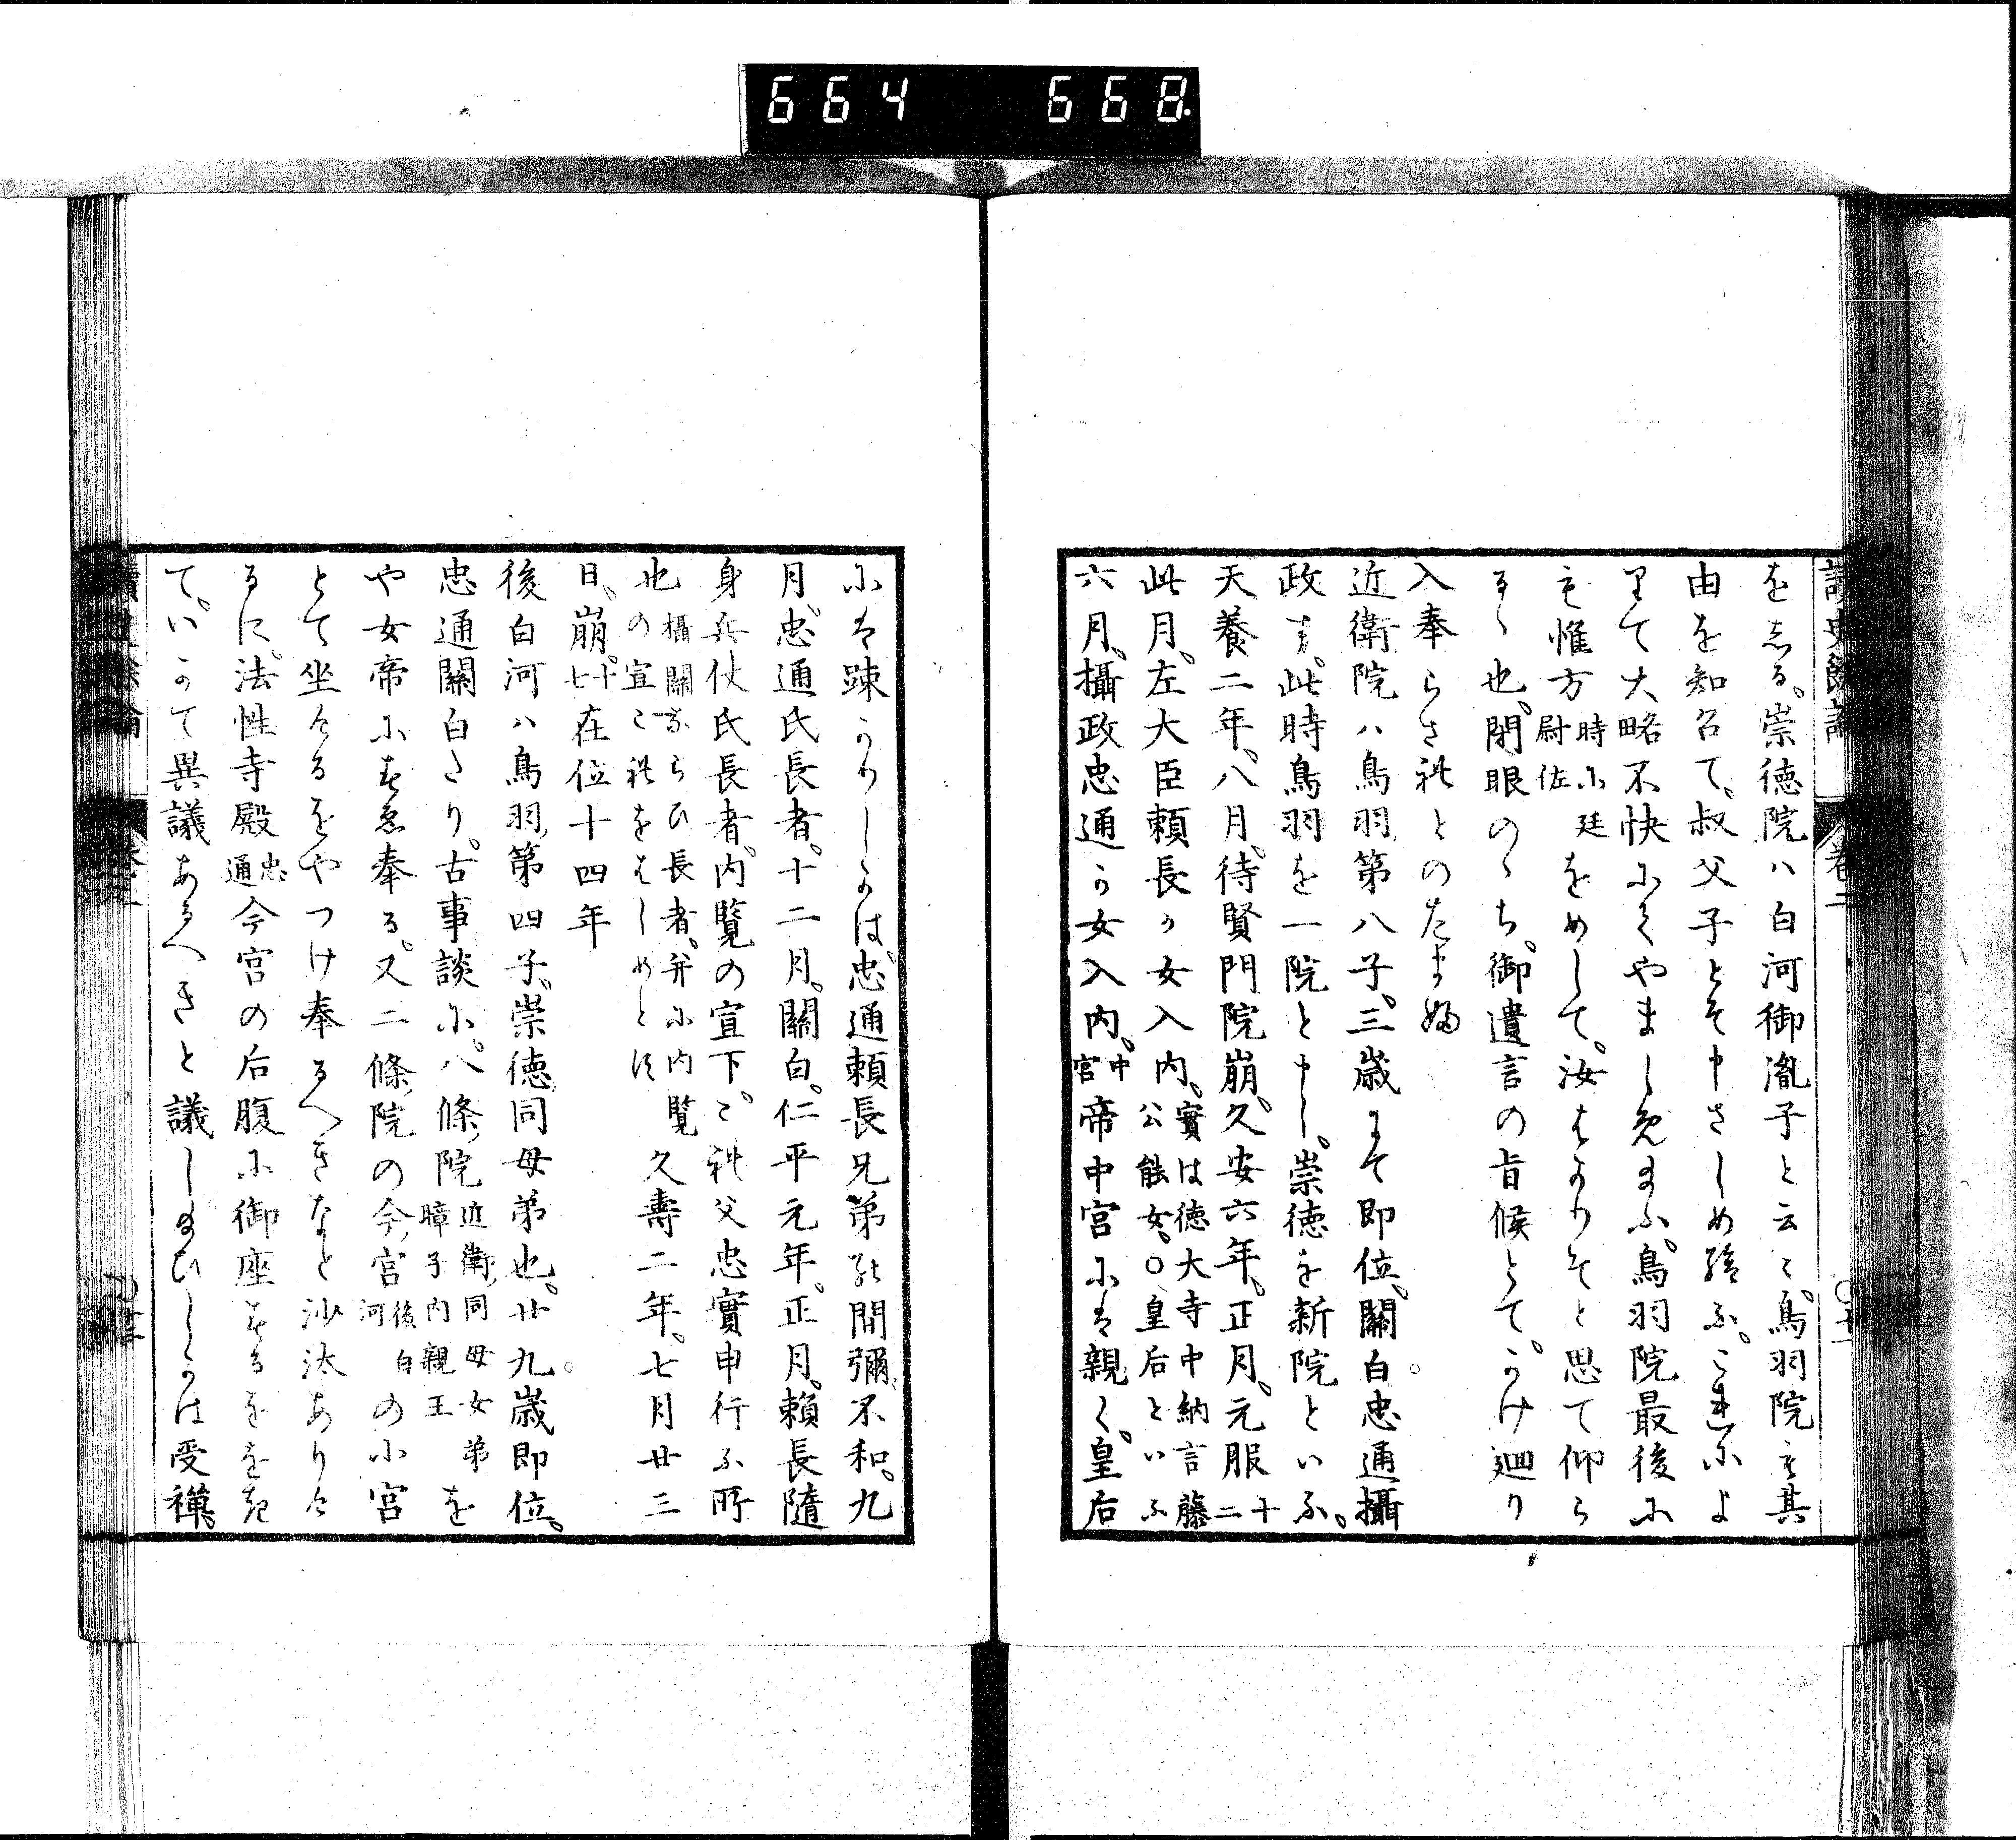 664 668
讀史餘論 卷二
をしる、崇徳院ハ白河御胤子と云々、鳥羽院も其
由を知召て、叔父子とそ申さしめ給ふ、これによ
りて大略不快にてやましめ給ふ、鳥羽院最後に
も惟方 時に廷尉佐 をめして、汝はかりそと思て仰ら
るゝ也、閉眼のゝち、御遺言の旨候とて、かけ廻り
入奉らされとのたまふ
近衛院ハ鳥羽第八子、三歳にて即位、關白忠通攝
政す、此時鳥羽を一院と申し、崇徳を新院といふ、
天養二年、八月、待賢門院崩、久安六年、正月、元服 十二
此月、左大臣頼長か女入内、實は徳大寺中納言藤公能女、〇皇后といふ
六月、攝政忠通か女入内、中宮 帝中宮には親く、皇后
には疎かりしかは、忠通頼長兄弟の間彌不和、九
月、忠通氏長者、十二月、關白、仁平元年、正月、頼長隨
身兵仗氏長者、内覽の宣下、これ父忠實申行ふ所
也 攝關ならひ長者、并に内覽の宣これをはしめとす 久壽二年、七月廿三
日、崩、十七 在位十四年
後白河ハ鳥羽第四子、崇徳同母弟也、廿九歳即位、
忠通關白たり、古事談に、八條院 近衛同母女弟暲子内親王 を
や女帝にすゑ奉る、又二條院の今宮 後白河 の小宮
とて坐けるをやつけ奉るへきなと沙汰ありけ
るに、法性寺殿 忠通 今宮の后腹に御座するをおき
て、いかて異議あるへきと議し給ひしかは受禪、
讀史餘論